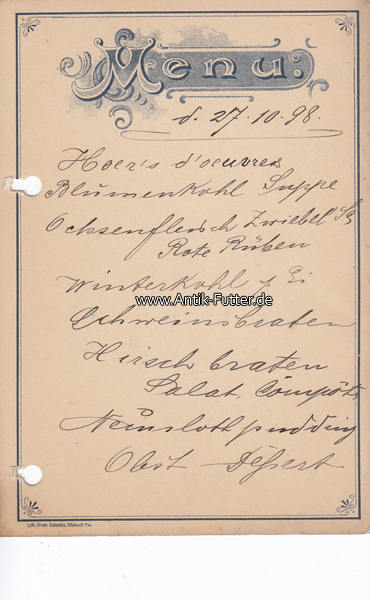 Menu:
d. 27.10.98.
Hoer's d'oeuvres
Blumenkohl Suppe
Ochsenfleisch Zwiebel
Rote Rüben
Winterkohl Ei
www.Antik-Futter.de
Schweinsbraten
Hirschbraten
Salat, Compots
pudding
Obst Deßert